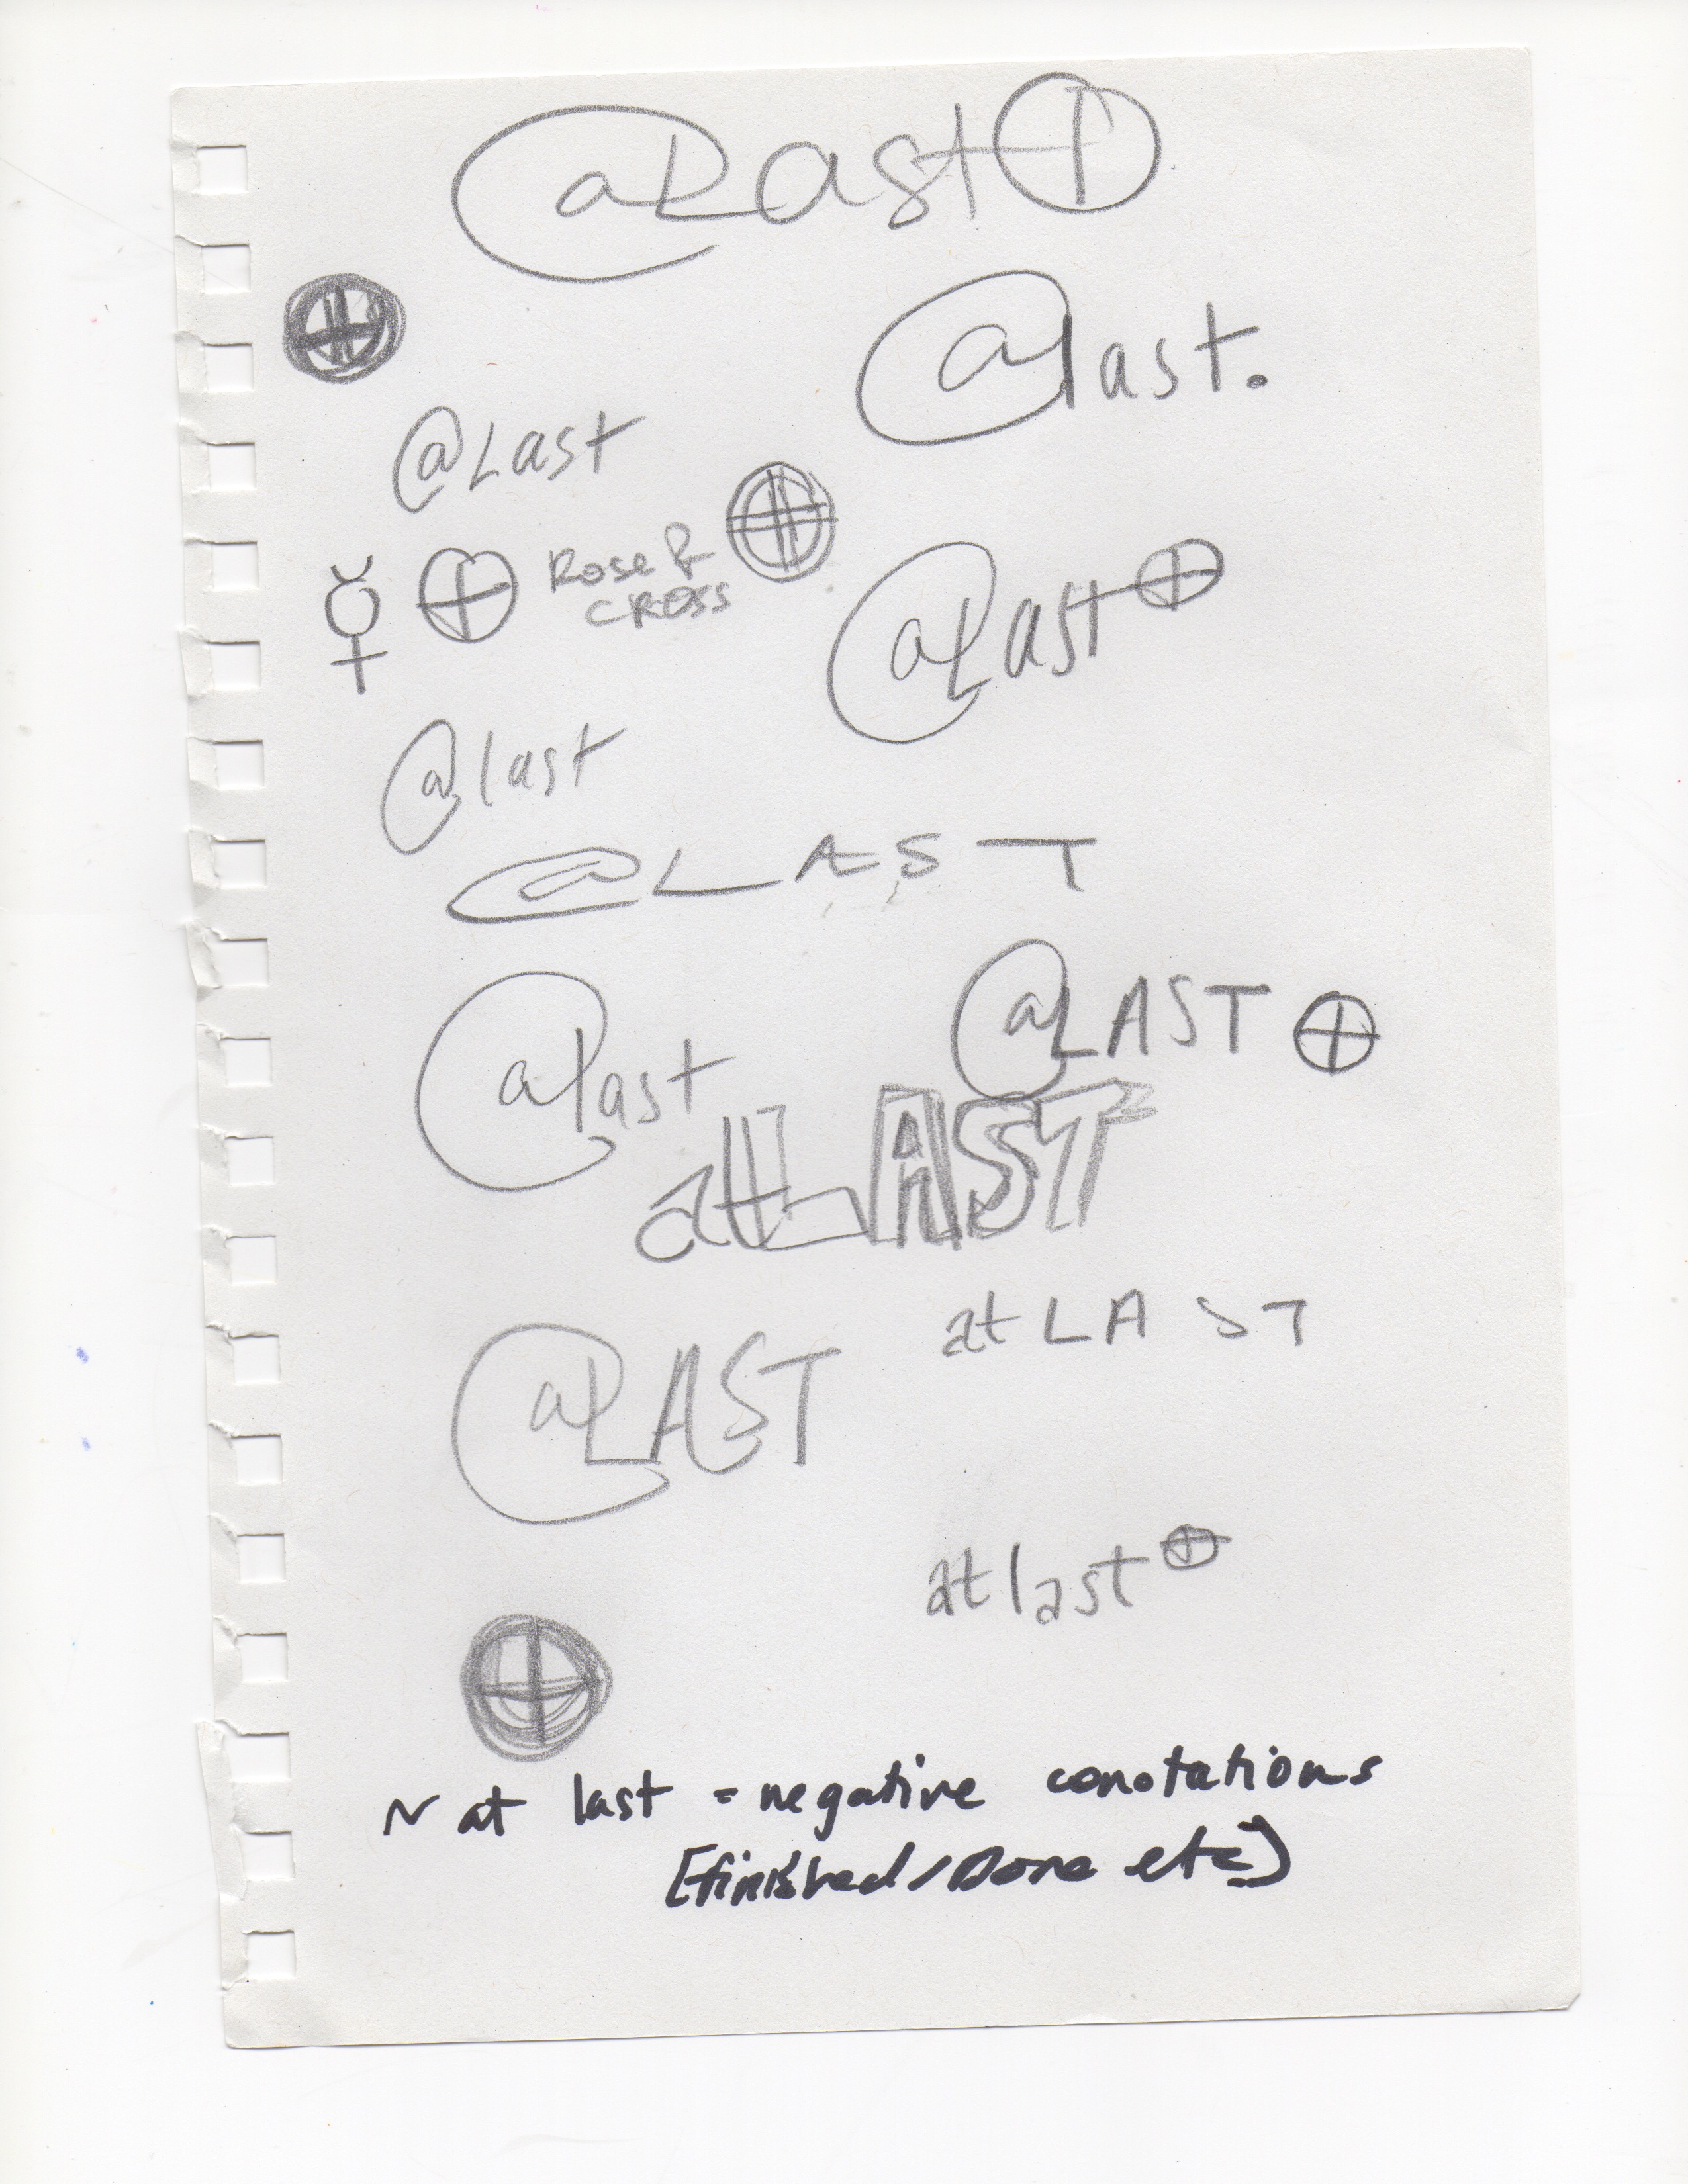 @Last⊕
@last.
@Last
☿ ⊕ Rose &
CROSS
@Last⊕
@last
@LAST
@LAST ⊕
@last
atLAST
at LAST
@LAST
at last⊕
~ at last = negative conotations
[finished/Done etc]